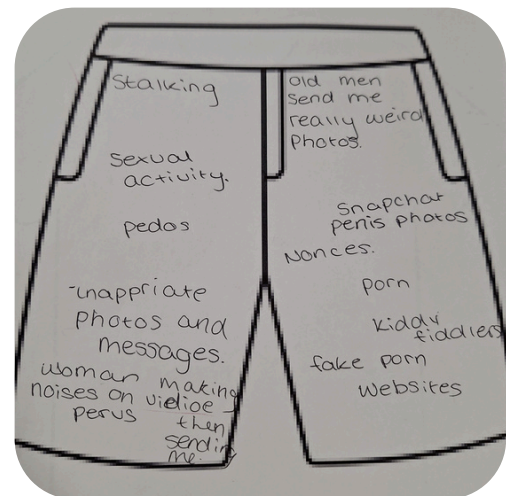 Stalking
Sexual
activity.
pedos
-inappriate
photos and
messages.
woman making
noises on vidioe
pervs then
sending
me.
Old men
Send me
really weird
Photos.
Snapchat
penis photos
Nonces.
porn
kiddy
fiddlers
fake porn
websites